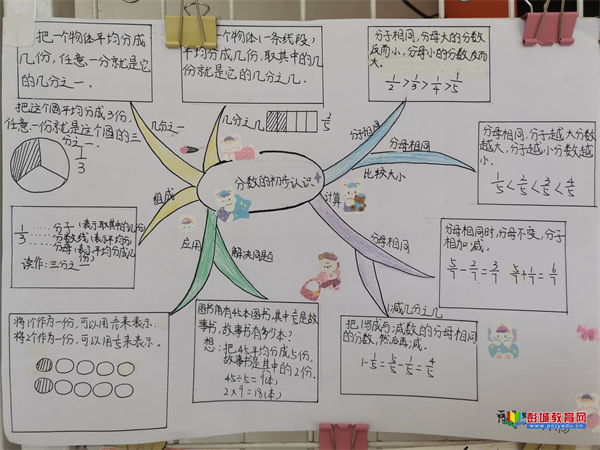 把一个物体平均分成
几份,任意一份就是它
的几分之一
把一个物体(一条线段)
平均分成几份,取其中的几
份就是它的几分之几
分子相同,分母大的分数
反而小,分母小的分数反而
大。
1/2>1/3>1/4>1/5
把这个圆平均分成3份,
任意一份就是这个圆的三
分之一
1/3
几分之一
几分之几
2/5
分子相同
分母相同
比较大小
分母相同,分子越大分数
越大,分子越小分数越
小。
1/5<2/5<3/5<4/5
分数的初步认识
组成
计算
应用
解决问题
分母相同
1减几分之几
1/3
分子(表示取其中的几份)
分数线(表示平均分)
分母(表示平均分成几
份)
读作:三分之一
分母相同时,分母不变,分子
相加减。
5/7-2/7=3/7 5/7+1/7=6/7
将1个作为一份,可以用1/5来表示.
将2个作为一份,可以用1/5来表示。
图书角有45本图书,其中2/5是故
事书,故事书有多少本?
想:把45平均分成5份,
故事书是其中的2份.
45÷5=9(本)
2×9=18(本)
把1写成与减数的分母相同
的分数,然后再减.
1-1/5=5/5-1/5=4/5
彭城教育网
www.pcjyedu.cn